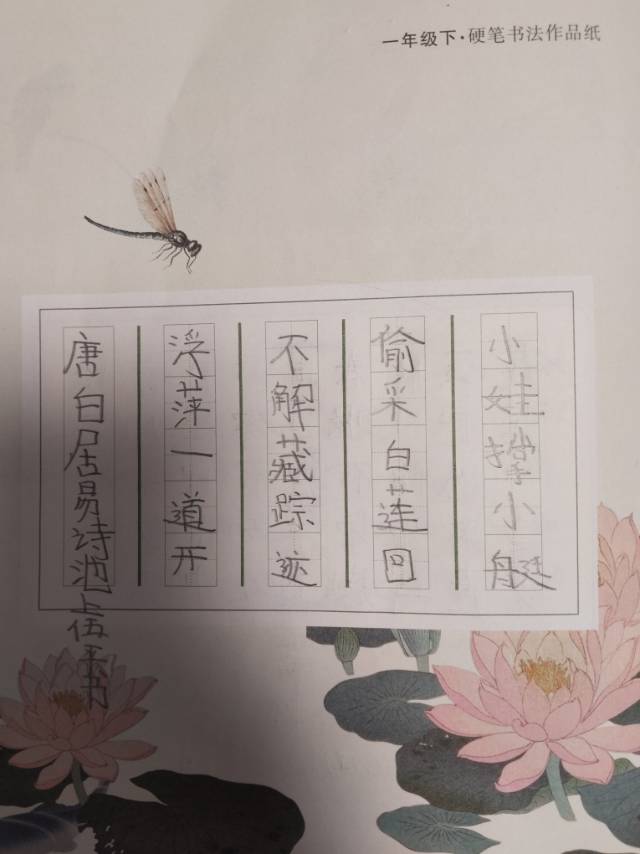 一年级下·硬笔书法作品纸
小娃撑小艇
偷采白莲回
不解藏踪迹
浮萍一道开
唐白居易诗池上伍书